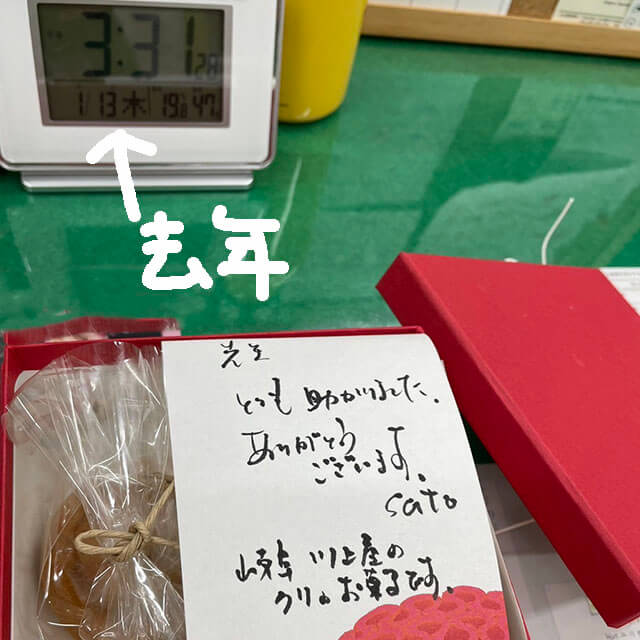 3:31 28
1/13 木 19.8 47
去年
先生
とても助かりました。
ありがとう
ございます。
sato
岐阜 川上屋の
クリのお菓子です。